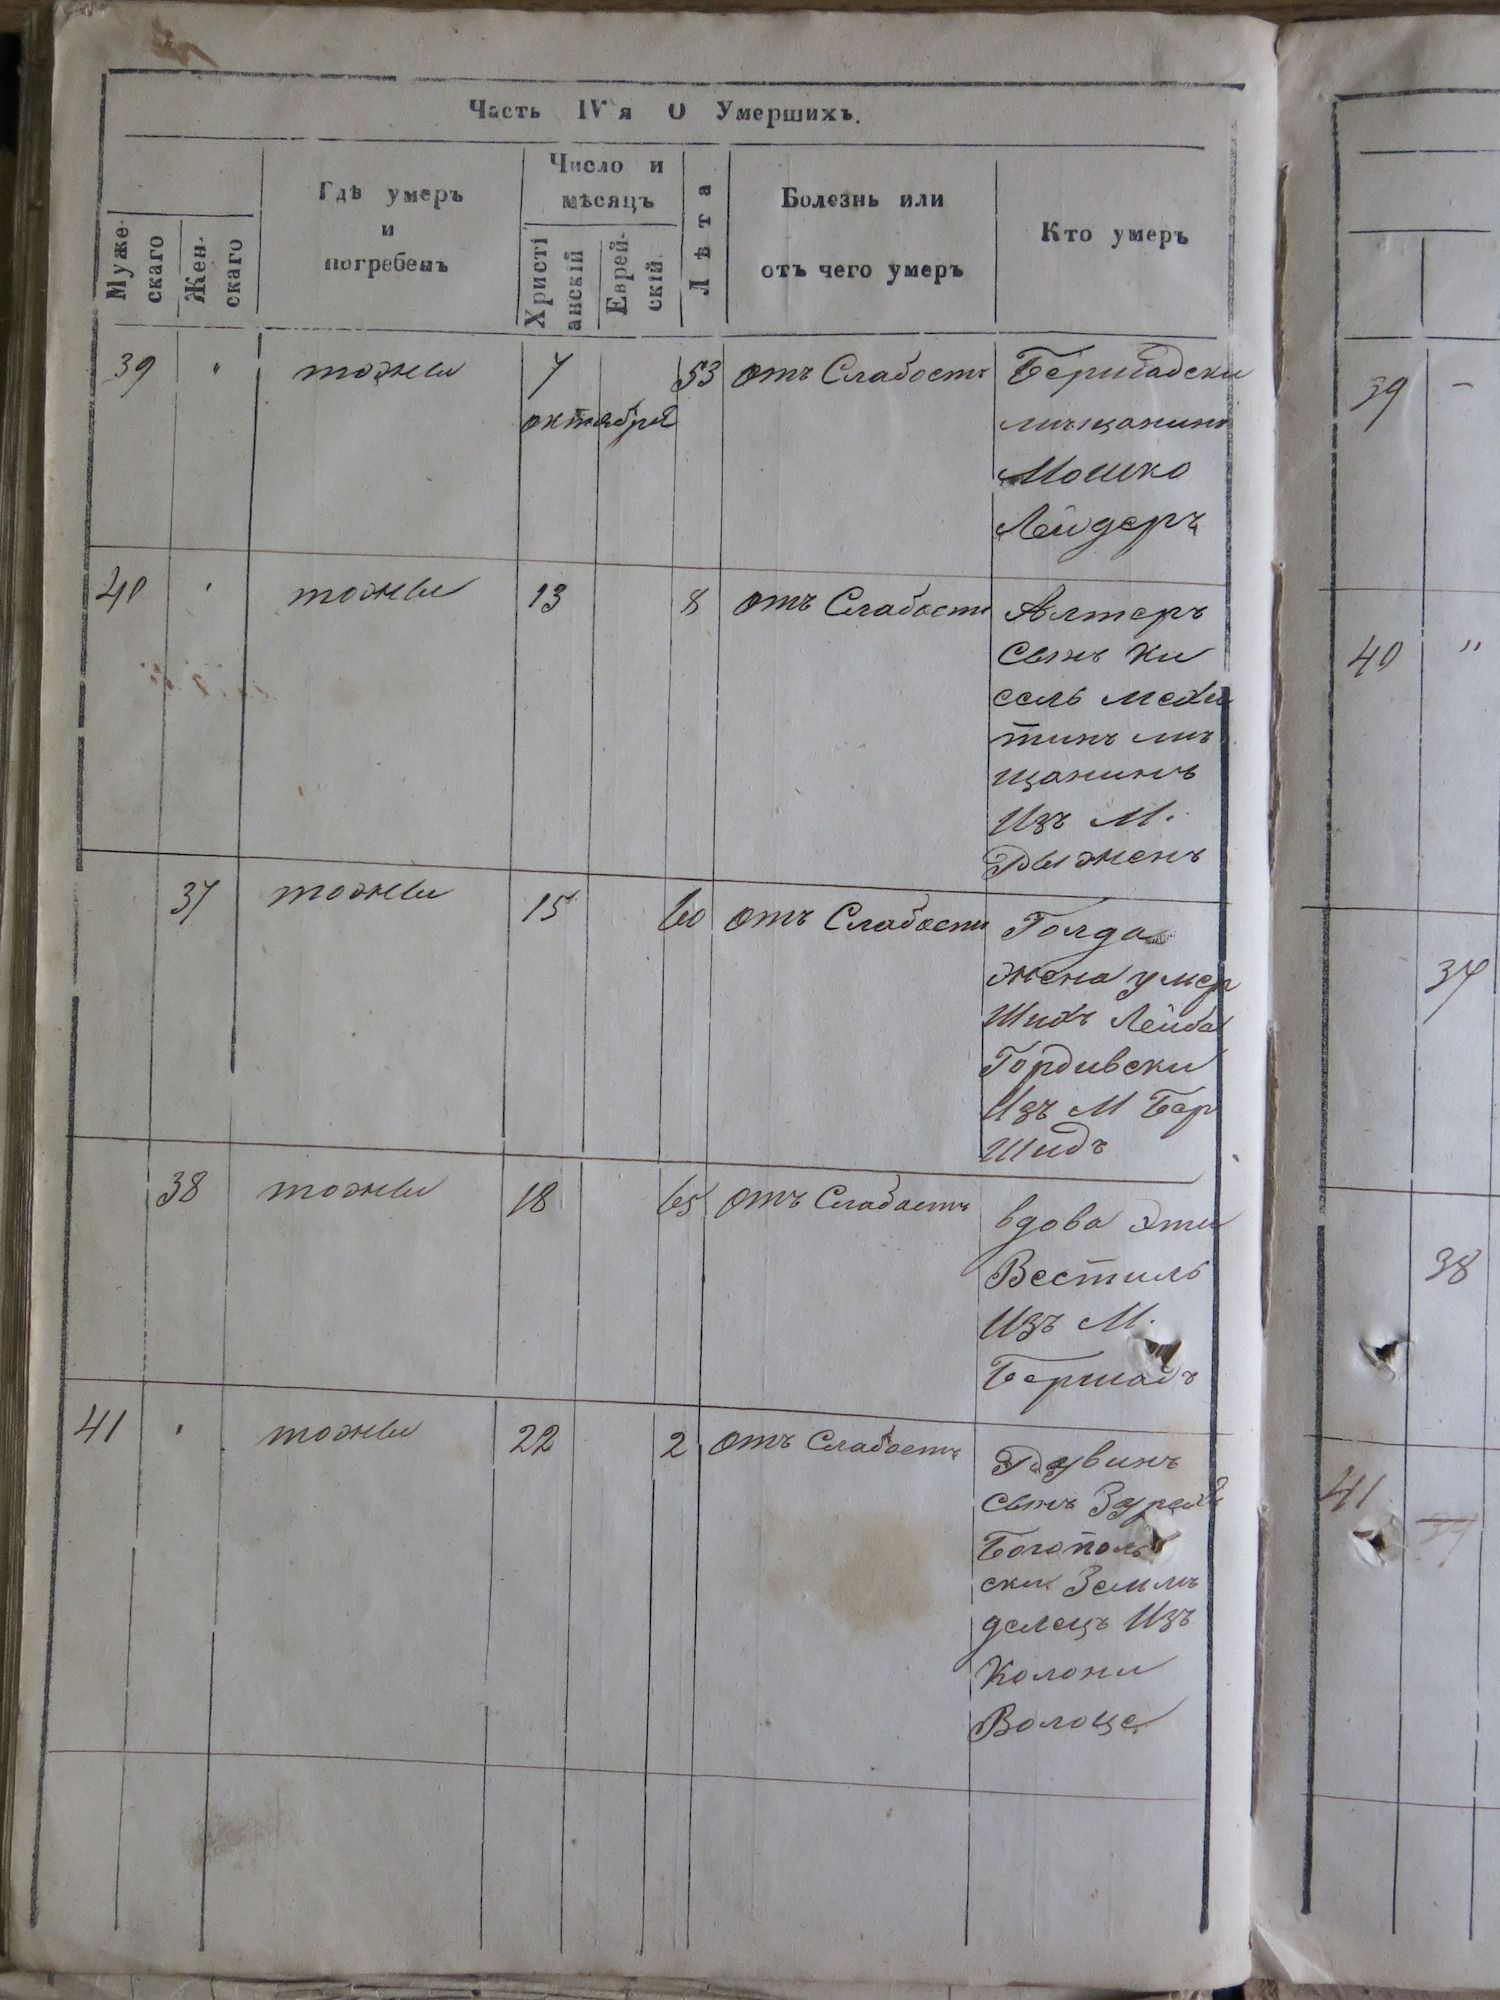 Часть IV я О Умершихъ.
Муже-
скаго
Жен-
скаго
Гдѣ умеръ
и
погребенъ
Число и
мѣсяцъ
Христі
анскій
Еврей-
скій.
Лѣта
Болезнь или
отъ чего умеръ
Кто умеръ
39 " тожы 7 53 отъ Слабость
октября
мѣщанинъ
Мошко
Лейдеръ
40 " тожы 13 8 отъ Слабости Алтеръ
Сынъ Ки
сель
тинъ мѣ
щанинъ
Изъ М.
37 тожы 15 60 отъ Слабости Голда
жена умер
Шихъ Лейба
Гордивски
Изъ М Бер
Шидъ
38 тожы 18 65 отъ Слабость вдова Эти
Вестиль
Изъ М.
Бершадъ
41 " тожы 22 2 отъ Слабость
сынъ
Богополь
ски Землѣ
делецъ Изъ
Колони
Волоце
39 –
40 "
37
38
41